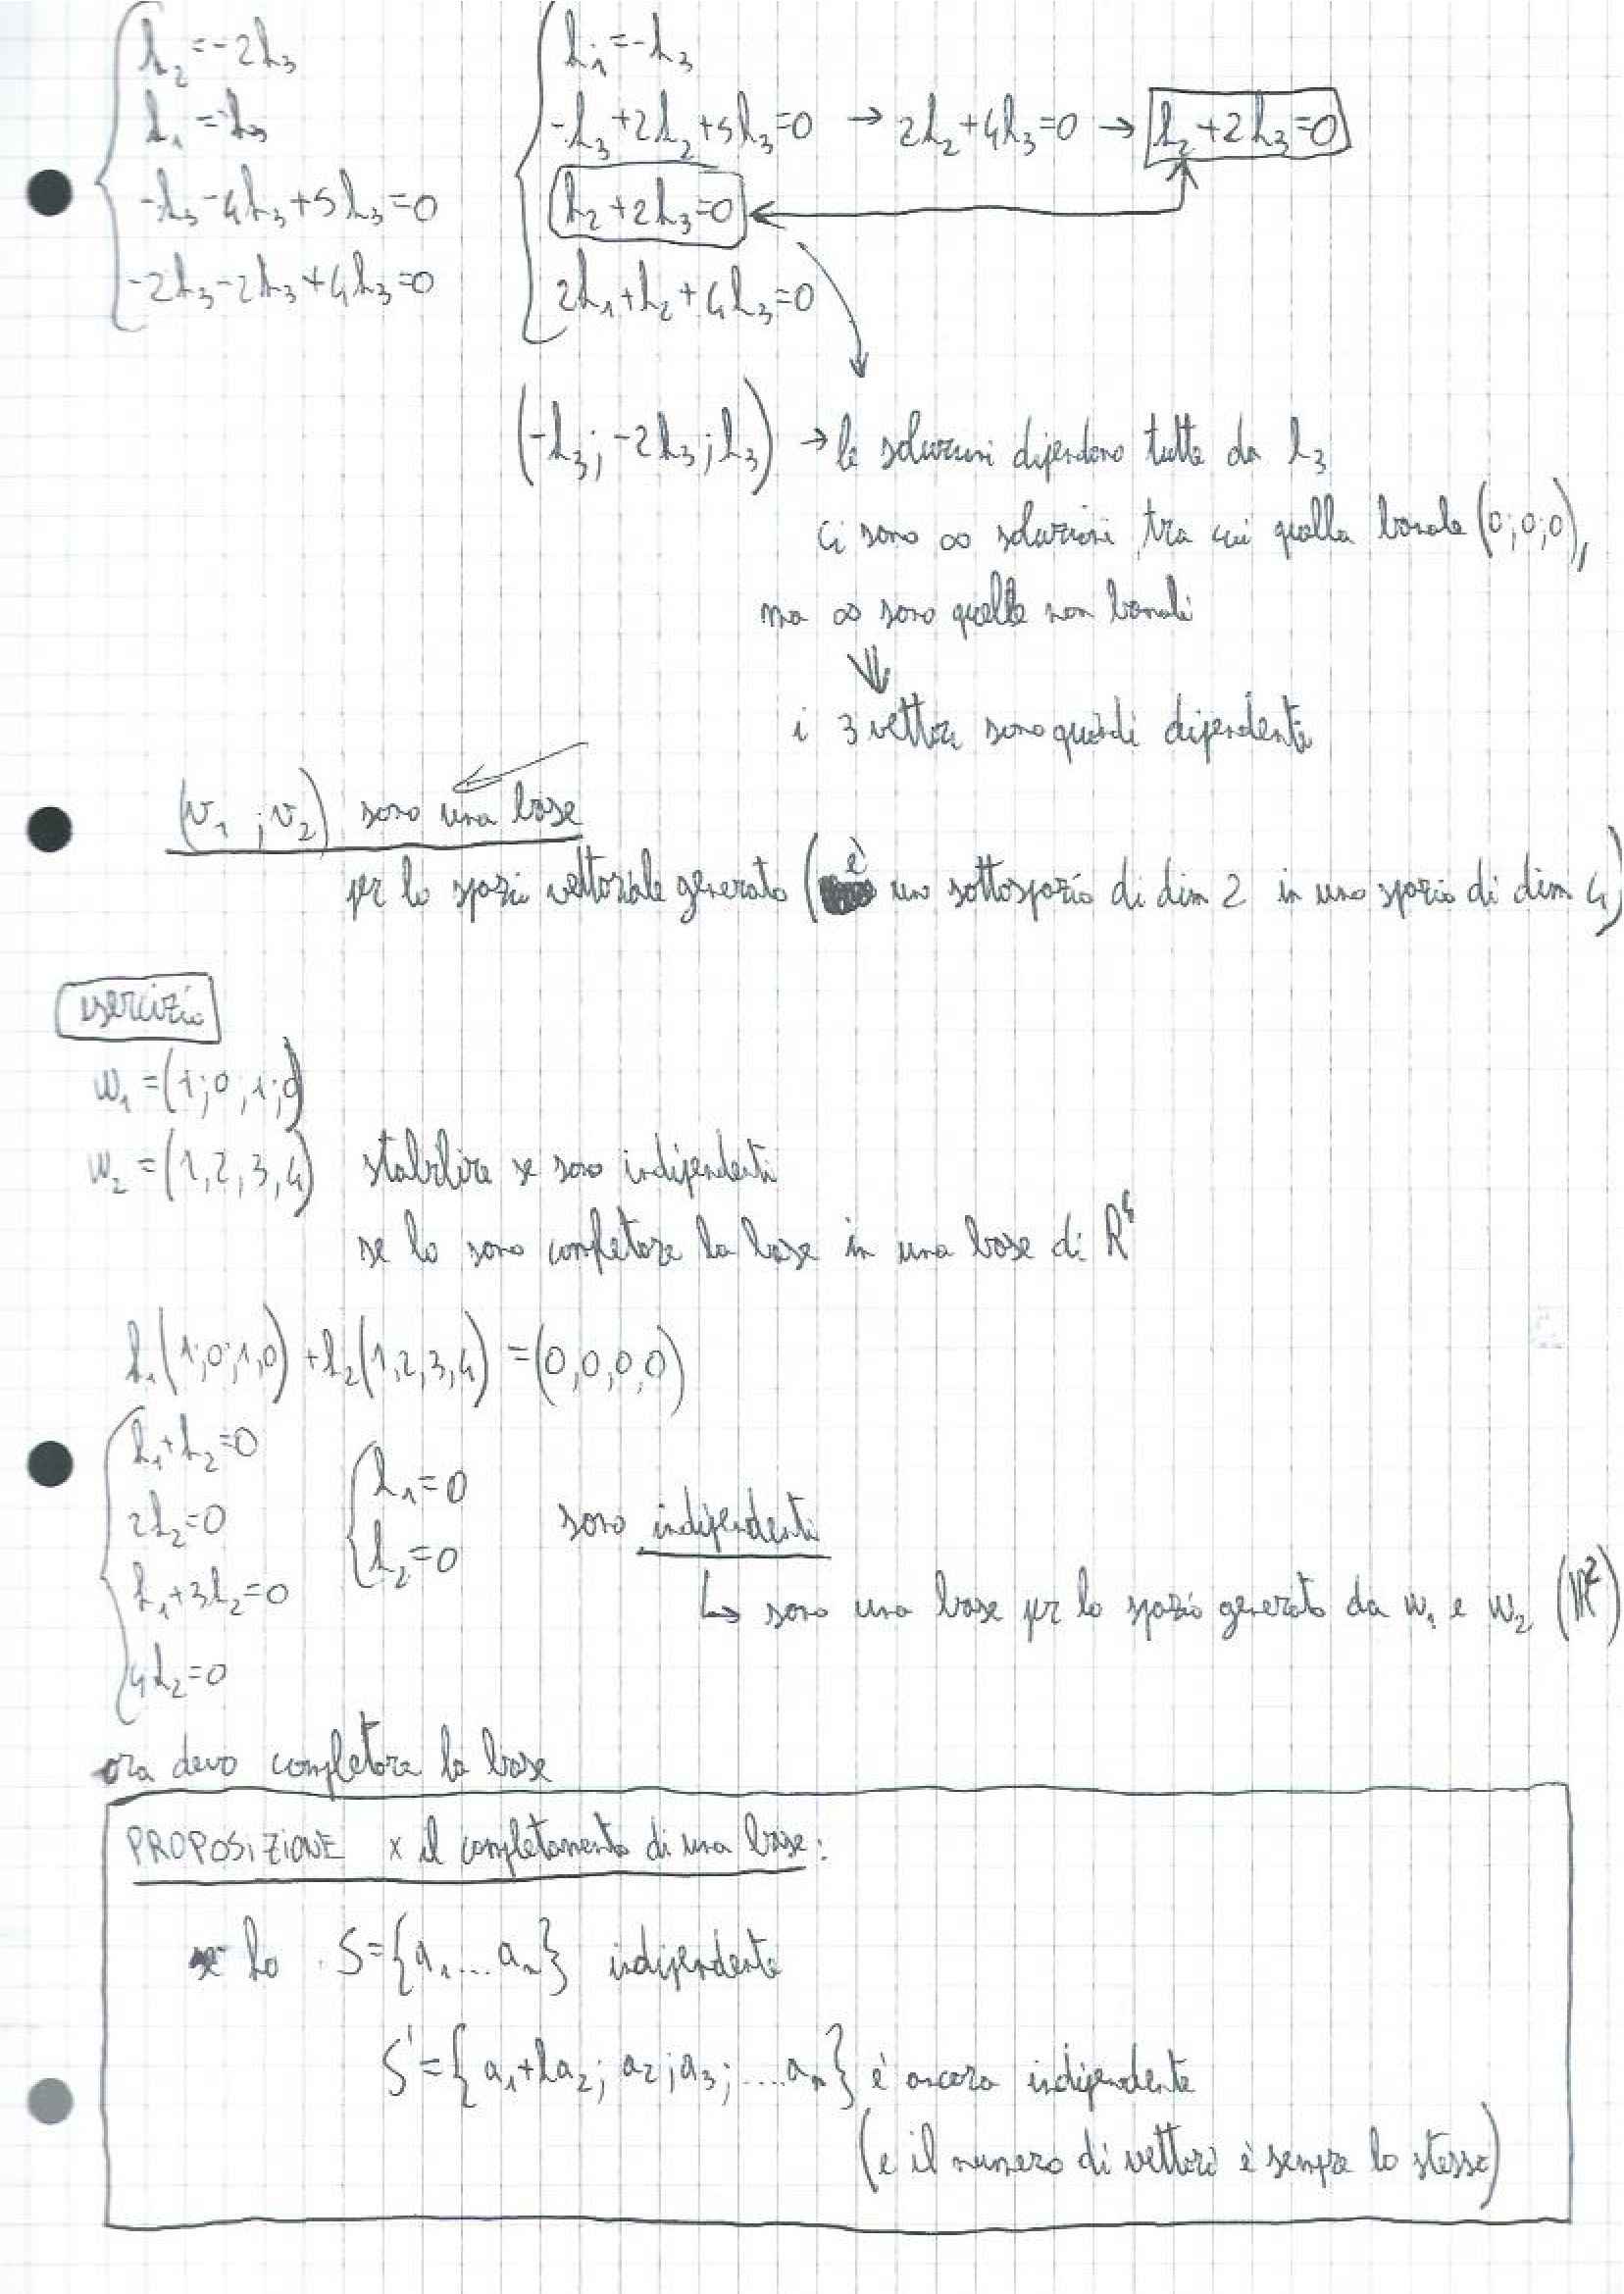 h₂=-2h₃
h₁=-h₃
-h₃-4h₃+5h₃=0
-2h₃-2h₃+4h₃=0
h₁=-h₃
-h₃+2h₂+5h₃=0 → 2h₂+4h₃=0 → h₂+2h₃=0
h₂+2h₃=0
2h₁+h₂+4h₃=0
(-h₃;-2h₃;h₃) → le soluzioni dipendono tutte da h₃
ci sono ∞ soluzioni, tra cui quella banale (0;0;0),
ma ∞ sono quelle non banali
⇓
i 3 vettori sono quindi dipendenti
(v₁;v₂) sono una base
per lo spazio vettoriale generato (è uno sottospazio di dim 2 in uno spazio di dim 4)
esercizio
w₁=(1;0;1;0)
w₂=(1,2,3,4) stabilire se sono indipendenti
se lo sono completare la base in una base di R⁴
h₁(1;0;1,0)+h₂(1,2,3,4)=(0,0,0,0)
h₁+h₂=0
2h₂=0
h₁+3h₂=0
4h₂=0
h₁=0
h₂=0
sono indipendenti
↳ sono una base per lo spazio generato da w₁ e w₂ (R²)
ora devo completare la base
PROPOSIZIONE x il completamento di una base:
se ho S={a₁...aₙ} indipendente
S'={a₁+ha₂;a₂;a₃;....aₙ} è ancora indipendente
(e il numero di vettori è sempre lo stesso)